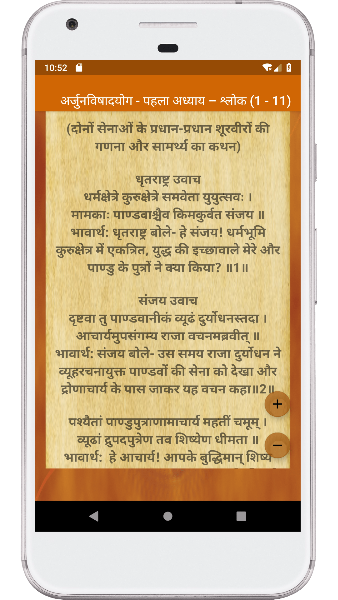 10:52
अर्जुनविषादयोग - पहला अध्याय – श्लोक (1 - 11)
(दोनों सेनाओं के प्रधान-प्रधान शूरवीरों की
गणना और सामर्थ्य का कथन)
धृतराष्ट्र उवाच
धर्मक्षेत्रे कुरुक्षेत्रे समवेता युयुत्सवः ।
मामकाः पाण्डवाश्चैव किमकुर्वत संजय ॥
भावार्थ: धृतराष्ट्र बोले- हे संजय! धर्मभूमि
कुरुक्षेत्र में एकत्रित, युद्ध की इच्छावाले मेरे और
पाण्डु के पुत्रों ने क्या किया? ॥1॥
संजय उवाच
दृष्टवा तु पाण्डवानीकं व्यूढं दुर्योधनस्तदा ।
आचार्यमुपसंगम्य राजा वचनमब्रवीत् ॥
भावार्थ: संजय बोले- उस समय राजा दुर्योधन ने
व्यूहरचनायुक्त पाण्डवों की सेना को देखा और
द्रोणाचार्य के पास जाकर यह वचन कहा॥2॥
पश्यैतां पाण्डुपुत्राणामाचार्य महतीं चमूम् ।
व्यूढां द्रुपदपुत्रेण तव शिष्येण धीमता ॥
भावार्थ: हे आचार्य! आपके बुद्धिमान् शिष्य